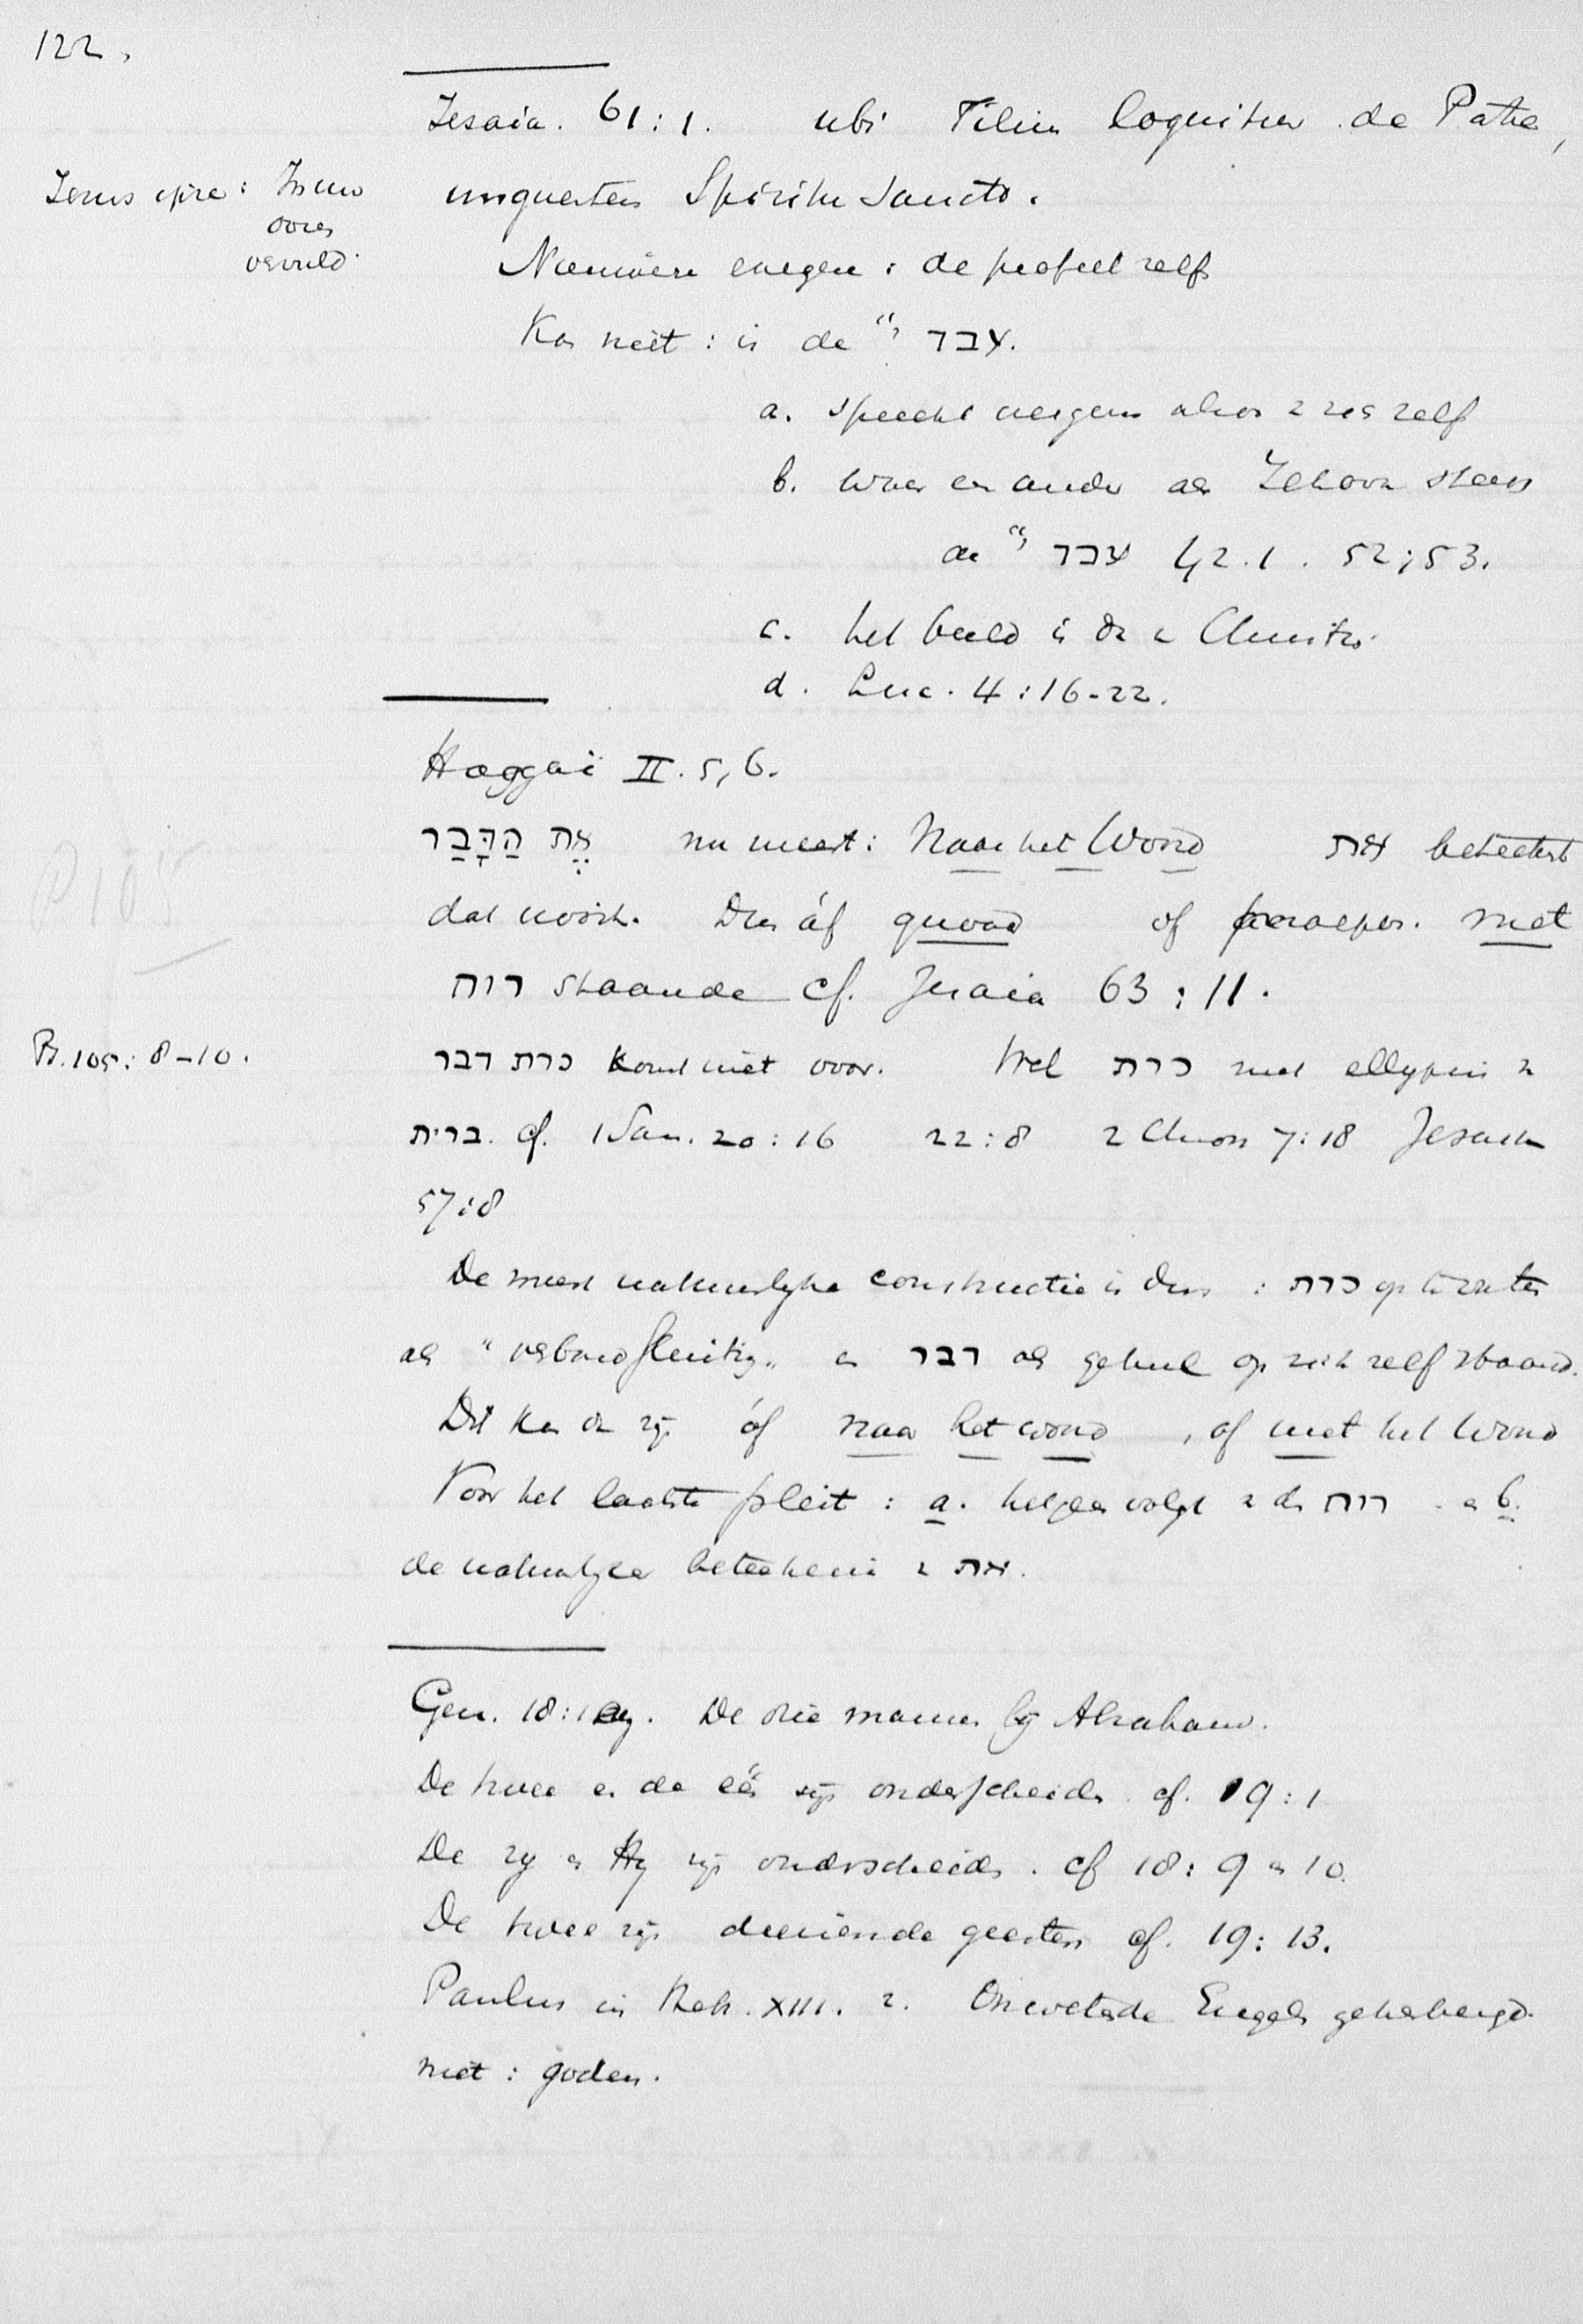 122.
Jesaia. 61:1. ubi Filius loquitur de Patre,
unguenten Spiritu Sancto.
Jesus ipse: In uw
ooren
vervuld.
Nieuwere exegese: de profeet zelf
Kan niet: is de עבד "י.
a. spreekt nergens alzoo v. zich zelf
b. waar een ander als Jehova steeds
de עבד "י 42.1. 52; 53.
c. het beeld is dat v. Christus.
d. Luc. 4:16-22.
Haggai II. 5, 6.
אֶת הַדָּבָר nu meest: Naar het Woord את beteekent
dat nooit. Dus óf quoad of praepos. met
רוח staande cf. Jesaia 63:11.
Ps. 105: 8-10.
כרת דבר komt niet voor. Wel כרת met ellypsis v.
ברית. cf. 1 Sam. 20:16 22:8 2 Chron 7:18 Jesaia
57:8
De meest natuurlyke constructie is dus: כרת op te vatten
als "verbondsluiting" en דבר als geheel op zich zelf staand.
Dit kan dan zijn óf naar het woord, of met het Woord
Voor het laatste pleit: a. hetgeen volgt v. de רוח en b.
de natuurlyke beteekenis v. את.
Gen. 18:1 . De drie mannen bij Abraham.
De twee en de één zijn onderscheiden cf. 19:1
De zy en Hy zijn onderscheiden. cf 18:9 en 10.
De twee zijn dienende geesten cf. 19:13.
Paulus in Heb. XIII. 2. Onwetende Engelen geherbergd.
niet: goden.